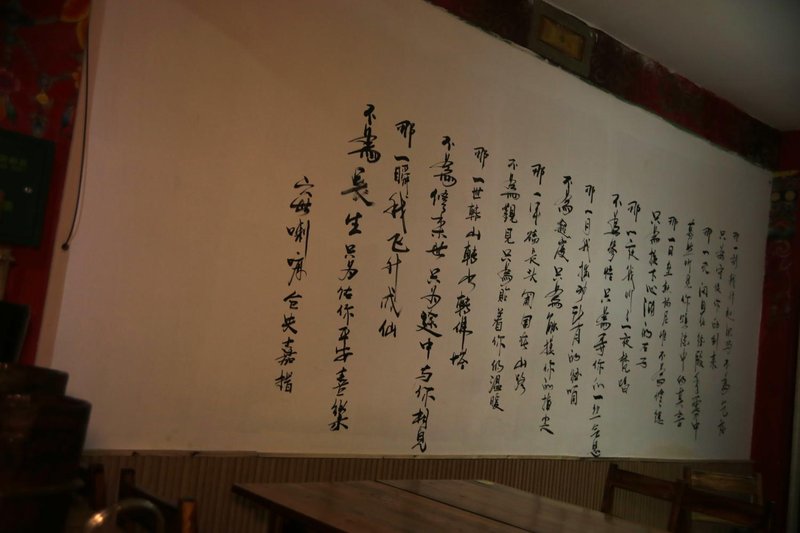 那一刻我升起风马不為乞福
只為守候你的到来
那一天闭目在经殿香雾中
蓦然听见你颂经中的真言
那一日垒起玛尼堆不為修德
只為投下心湖的石子
那一夜我听了一夜梵唱
不為参悟只為寻你的一丝气息
那一月我摇动所有的经筒
不為超度只為触摸你的指尖
那一年磕長头匍匐在山路
不為觐見只為贴着你的温暖
那一世转山转水转佛塔
不為修来世只为途中与你相見
那一瞬我飞升成仙
不為長生只为佑你平安喜樂
六世喇嘛仓央嘉措